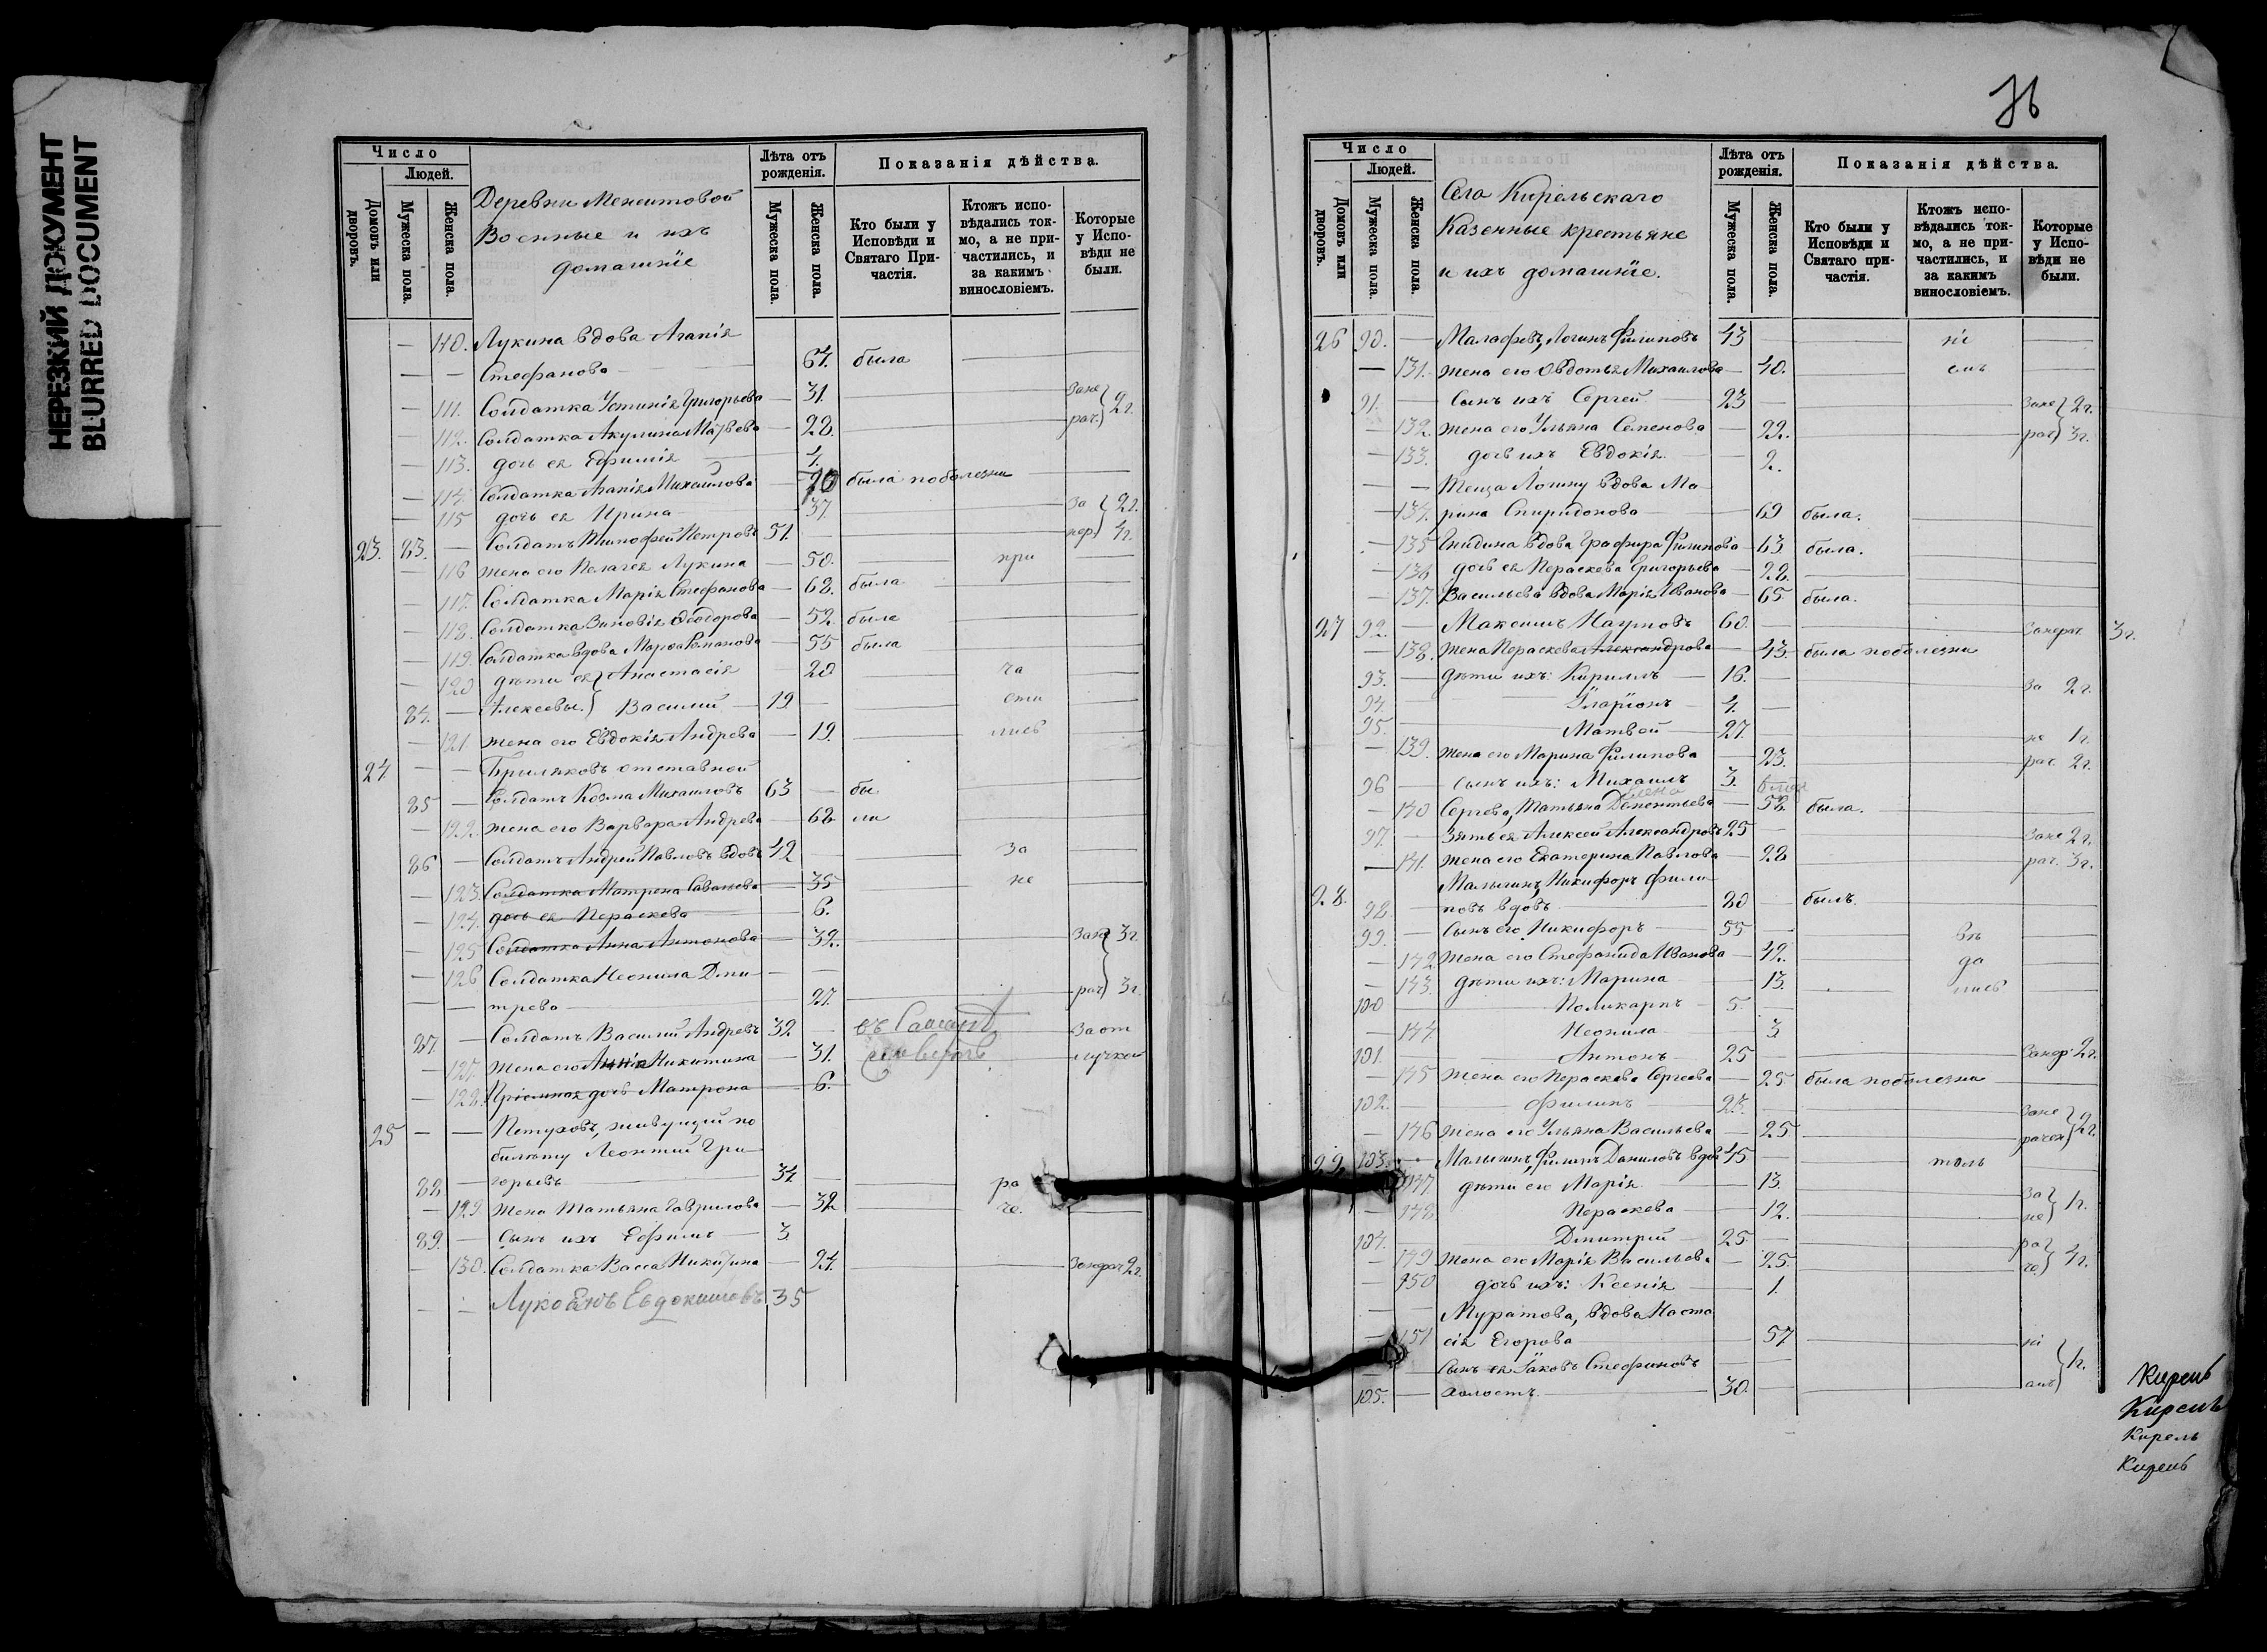 НЕРЕЗКИЙ ДОКУМЕНТ
BLURRED DOCUMENT
Число
Людей.
Домовъ или дворовъ.
Мужеска пола.
Женска пола.
Деревни
Военные и ихъ
домашніе
Лѣта отъ рожденія.
Мужеска пола.
Женска пола.
Показанія дѣйства.
Кто были у Исповѣди и Святаго Причастія.
Ктожъ исповѣдались токмо, а не причастились, и за какимъ винословіемъ.
Которые у Исповѣди не были.
110. Лукина вдова Агапія
Стефанова 67. была
111. Солдатка Устинія Григорьева 31. зане
112. Солдатка Акулина Матвѣева 28. рач. 2 г.
113. дочь ея Ефимія 4.
114. Солдатка Агапія Михайлова 70 была поболезни
115 дочь ея Ирина 37. за 2 г.
23. 83. Солдатъ Тимофей Петровъ 51. нер 4 г.
116 жена его Пелагея Лукина 50. при
117. Солдатка Марія Стефанова 68. была
118. Солдатка Зиновія Ѳеодорова 52. была
119. Солдатка вдова Марѳа Романова 55 была
120 дѣти ея Анастасія 20 ча
84. Алексеевы. Василий 19. сти
121 жена его Евдокія Андрева 19. лись
24 Брыляковъ отставной
85 Солдатъ Козма Михаиловъ 63 бы
122. жена его Варвара Андрева 68 ли
86 Солдатъ Андрей Павловъ вдовъ 42 за
123. Солдатка Матрена Саватева 35 не
124. дочь ея Параскева 6.
125 Солдатка Анна Антонова 32. зане 3 г.
126 Солдатка Неонила Дми
трева 27. рач 3 г.
87. Солдатъ Василий Андревъ 32 въ за от
127. Жена его Никитина 31. лучкой
128. Приемная дочь Матрона 6.
25 Петуховъ, живущий по
билету Леонтий Гри
88. горьевъ 34 ра
129. Жена Татьяна Гаврилова 32 че.
89. Сынъ ихъ Ефимъ 3
130. Солдатка Васса Никитина 24. занерач 2 г.
Евдокимовъ 35
76
Число
Людей.
Домовъ или дворовъ.
Мужеска пола.
Женска пола.
Села Кирельскаго
Казенные крестьяне
и ихъ домашніе.
Лѣта отъ рожденія.
Мужеска пола.
Женска пола.
Показанія дѣйства.
Кто были у Исповѣди и Святаго причастія.
Ктожъ исповѣдались токмо, а не причастились, и за какимъ винословіемъ.
Которые у Исповѣди не были.
26 90. Малафевъ, Логинъ Филиповъ 43
131. жена его Овдотья Михаилова 40.
91. Сынъ ихъ Сергей 23 зане 2 г.
132. жена его Ульяна Семенова 22. рач 3 г.
133. дочь ихъ Евдокія 2.
Теща Логину вдова Ма
134. рина Спиридонова 69 была.
135 вдова Графира Филипова 63 была.
136 дочь ея Параскева Григорьева 28.
137. Васильева вдова Марія Иванова 65. была.
27 92. Максимъ Наумовъ 60. занерач 3 г.
138. Жена Параскева Александрова 43. была поболезни
93. дѣти ихъ: Кириллъ 16. за 2 г.
94. Иларіонъ 4.
95. Матвей 27 не 1 г.
139. жена его Марина Филипова 23. рач. 2 г.
96 сынъ ихъ: Михаилъ 3.
140 Сергева, Татьяна Дементьева 58. была.
97. Зять ея Алексей Александровъ 25 зане 2 г.
141. жена его Екатерина Павлова 28 рач. 3 г.
28. Малыгинъ, Никифоръ Фили
98. повъ вдовъ 80 былъ
99. Сынъ его Никифоръ 55
142 Жена его Стефанида Иванова 42.
143. дѣти ихъ: Марина 13.
100 Поликарпъ 5.
144. Неонила 3
101. Антонъ 25 занер 2 г.
145 Жена его Параскева Сергеева 25 была поболезни
102. Филипъ 23. зане
146 Жена его Ульяна Васильева 25. рачен 2 г.
29 103. Малыгинъ, Филипъ Даниловъ вдов 45 толь
147. дѣти его Марія 13. за
148 Параскева 12. не 1 г.
104. Дмитрий 25 ра
149 Жена его Марія Васильева 25. че 4 г.
150 дочь ихъ: Ксенія 1.
Муратова, вдова Наста
151 сія Егорова 57
Сынъ ея Іаковъ Стефановъ
105. холостъ. 30. 1 г.
Кирель
Кирель
Кирель
Кирель